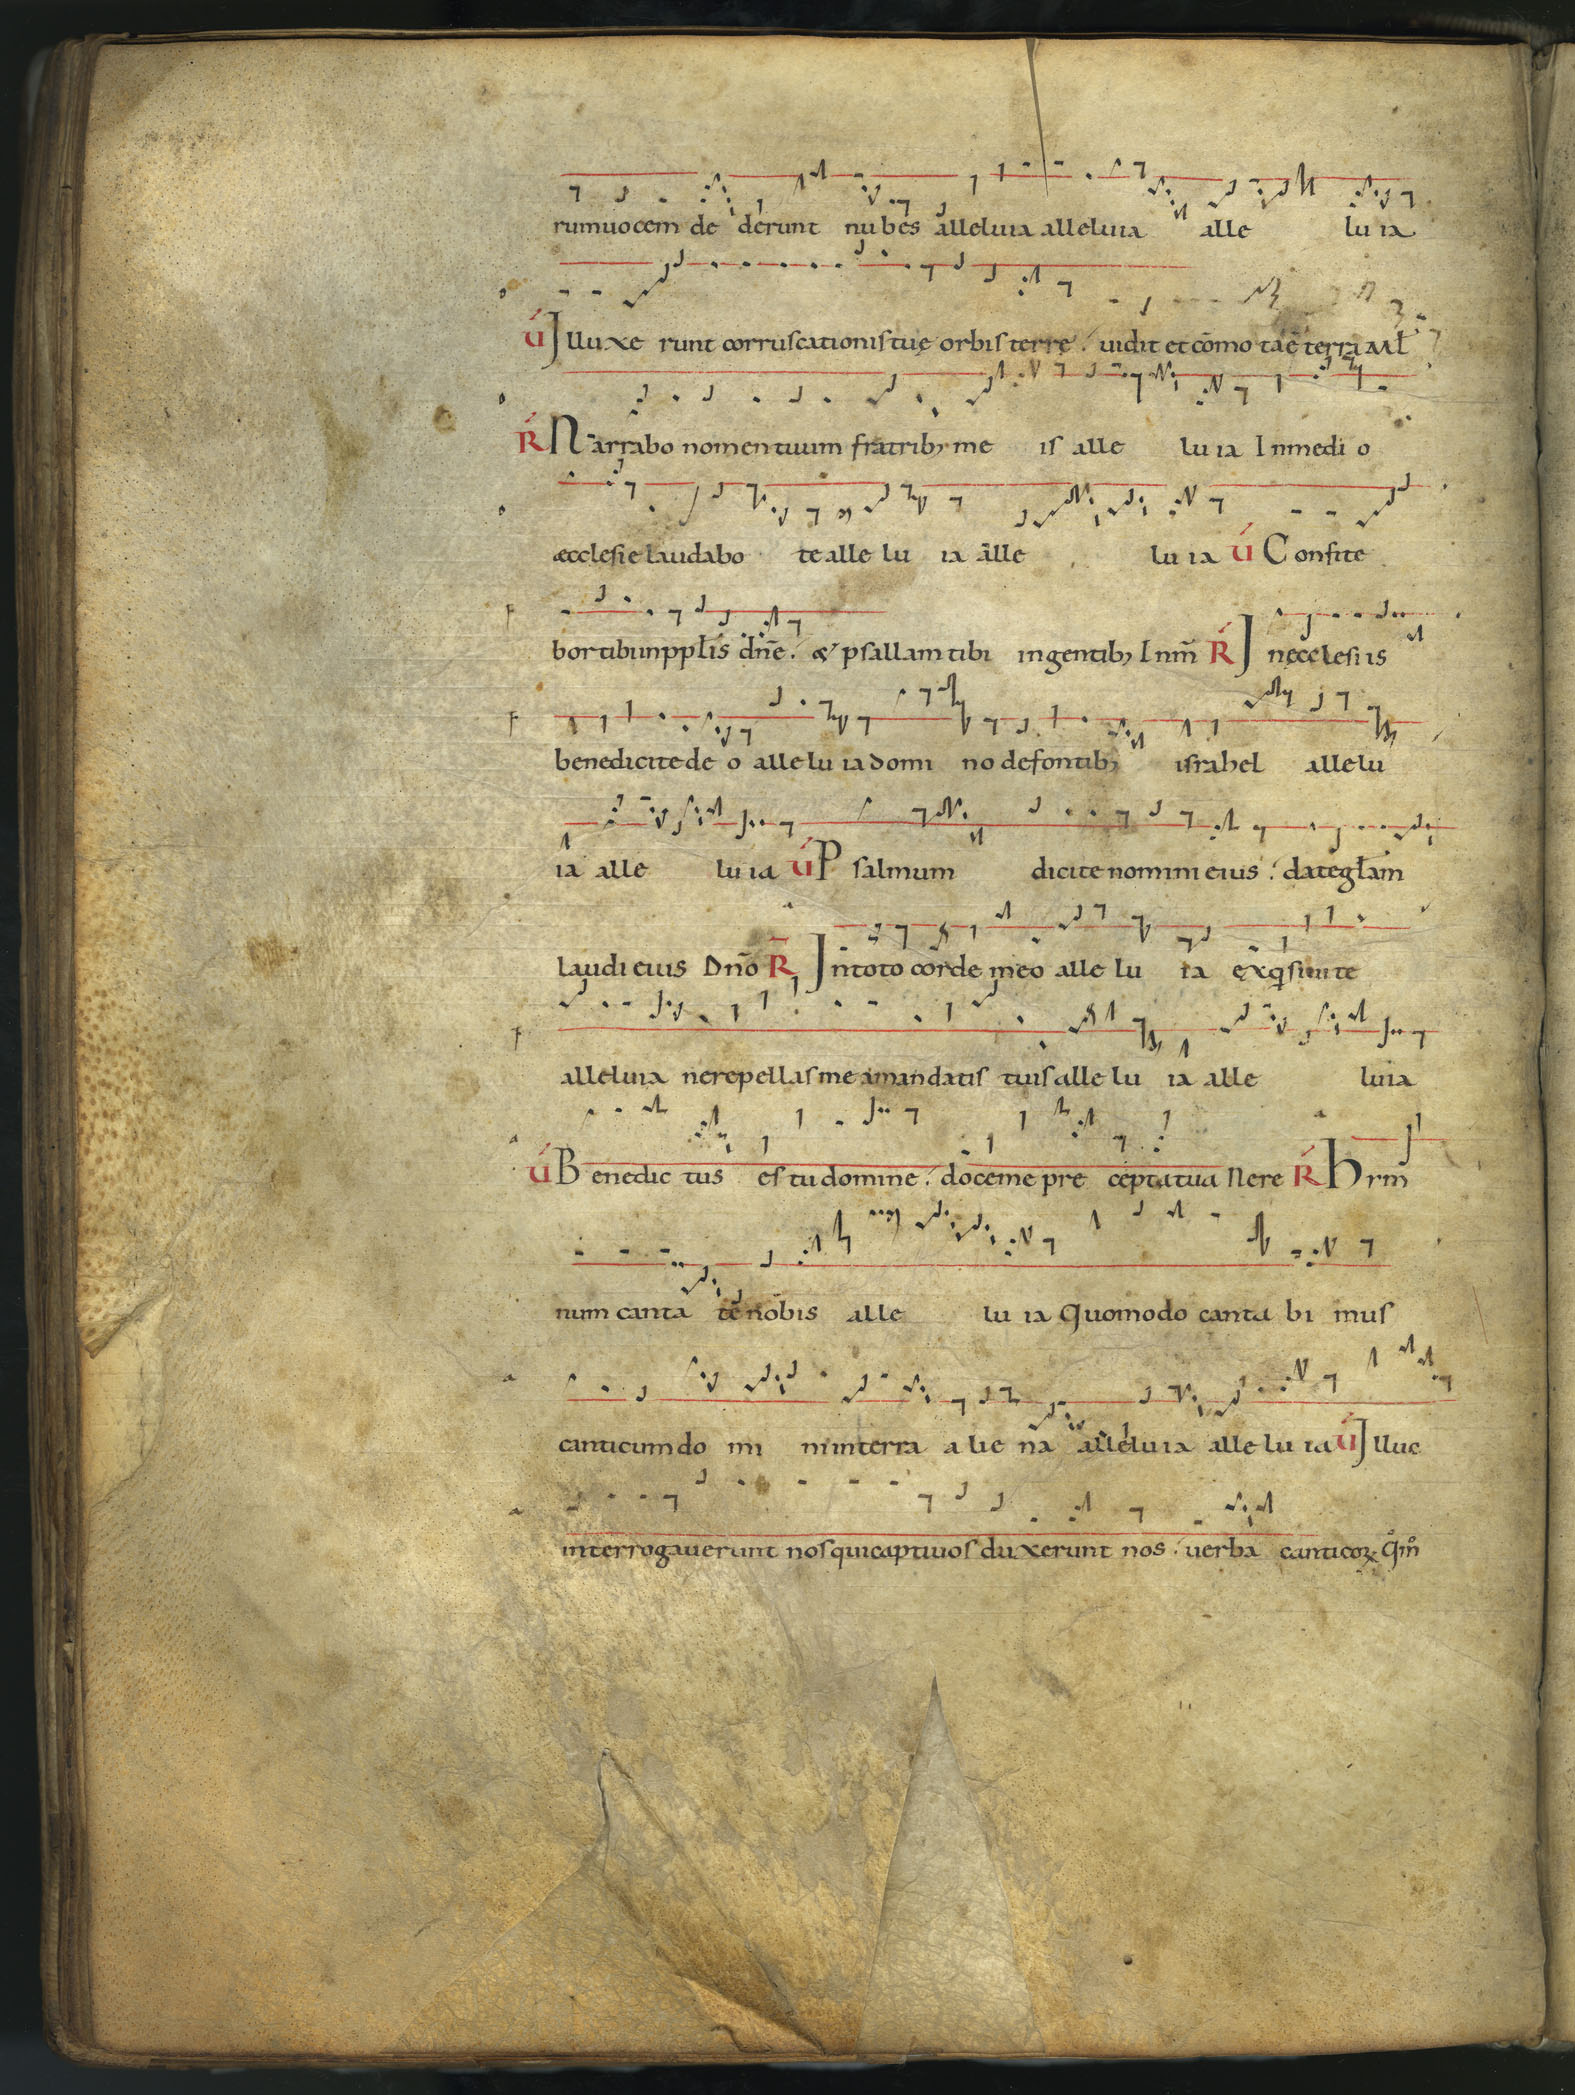 rumuocem de derunt nubes alleluia alleluia alle lu ia
V́ Jlluxe runt corruscationis tuę orbis terre. uidit et cōmo tāē terra Al̄
Ŕ Narrabo nomen tuum fratrib; me is alle lu ia Inmedi o
æcclesie laudabo te alle lu ia alle lu ia V́ Confite
bor tibi inppl̄is dn̄e. & psallam tibi in gentib; Inm̄ Ŕ Jn ecclesiis
benedicite de o alle lu ia domi no de fontib; israhel alle lu
ia alle lu ia V́ Psalmum dicite nomini eius. date gl̄am
laudi eius Dn̄o R̄ Jn toto corde meo alle lu ia exq̣siui te
alleluia ne repellas me a mandatis tuis alle lu ia alle luia
V́ Benedic tus es tu domine. doce me pre cepta tua Nere Ŕ hẏm
num canta te nobis alle lu ia Quomodo canta bi mus
canticum do mi ni in terra a lie na alleluia alle lu ia V́ Jlluc
interrogauerunt nos qui captiuos duxerunt nos. uerba canticoꝝ Q̊m̊